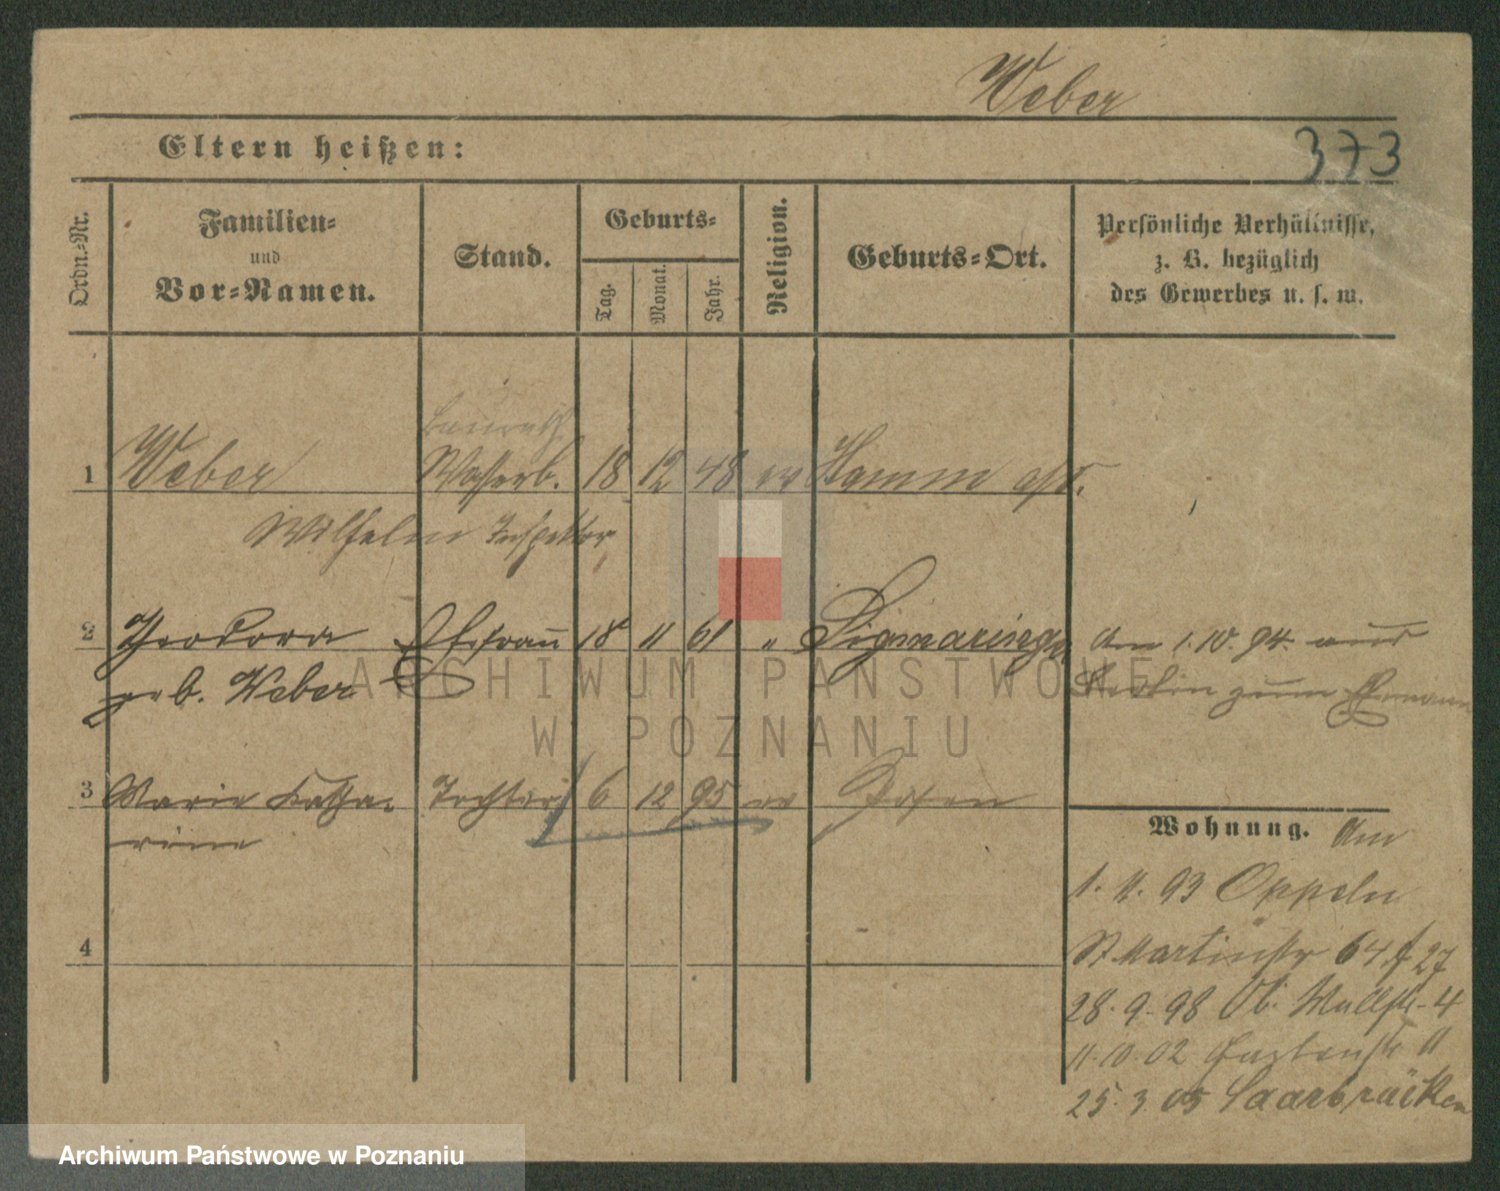 Weber
373
Eltern heißen:
Ordn.-Nr.
Familien-
und
Vor-Namen.
Stand.
Geburts-
Tag.
Monat.
Jahr.
Religion.
Geburts-Ort.
Persönliche Verhältnisse,
z. B. bezüglich
des Gewerbes u. s. w.
Baurath
1 Weber Wasserb. 18 12 48 ev Hamm
Wilhelm Inspektor
2 Theodora Ehefrau 18 11 61 " Sigmaringen Am 1.10.94. aus
geb. Weber Berlin zum Ehemann
3 Marie Katha- Tochter 6 12 95 ev Posen
rine
Wohnung. Am
1. 11. 93 Oppeln
St Martinstr 64 27
28.9.98 Ob. Wallstr. 4
11.10.02 11
25.3.05 Saarbrücken
4
ARCHIWUM PAŃSTWOWE
W POZNANIU
Archiwum Państwowe w Poznaniu